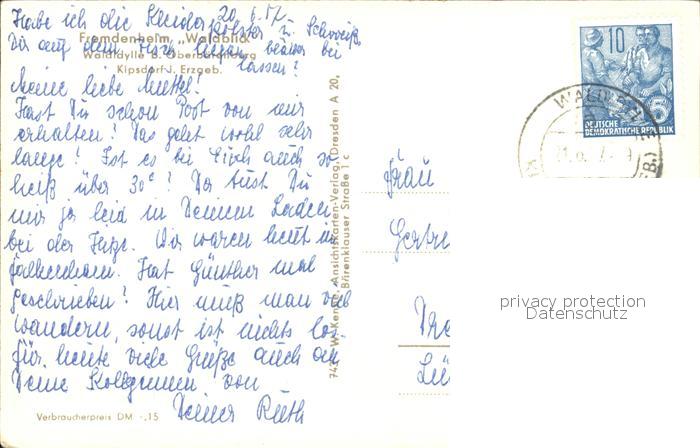 20.6.57
Habe ich die Kleider
Dir auf dem Tisch liegen bei
lassen?
Fremdenheim „Waldblick“
Waldidylle b. Oberbärenburg
Kipsdorf i. Erzgeb.
Meine liebe Muttel!
Hast Du schon Post von mir
erhalten? Das geht wohl sehr
lange! Ist es bei Euch auch so
heiß über 30°? Da tust Du
mir ja leid in Deinem Laden
bei der Hitze. Wir waren heut in
Falkenhain. Hat Günther mal
geschrieben? Hier muß man viel
wandern, sonst ist nichts los.
Für heute viele Grüße auch an
Deine Kolleginnen von
Deiner Ruth
Verbraucherpreis DM -,15
Ansichtskarten-Verlag, Dresden A 20,
Straße 1 c
10
5
DEUTSCHE
DEMOKRATISCHE REPUBLIK
Frau
privacy protection
Datenschutz